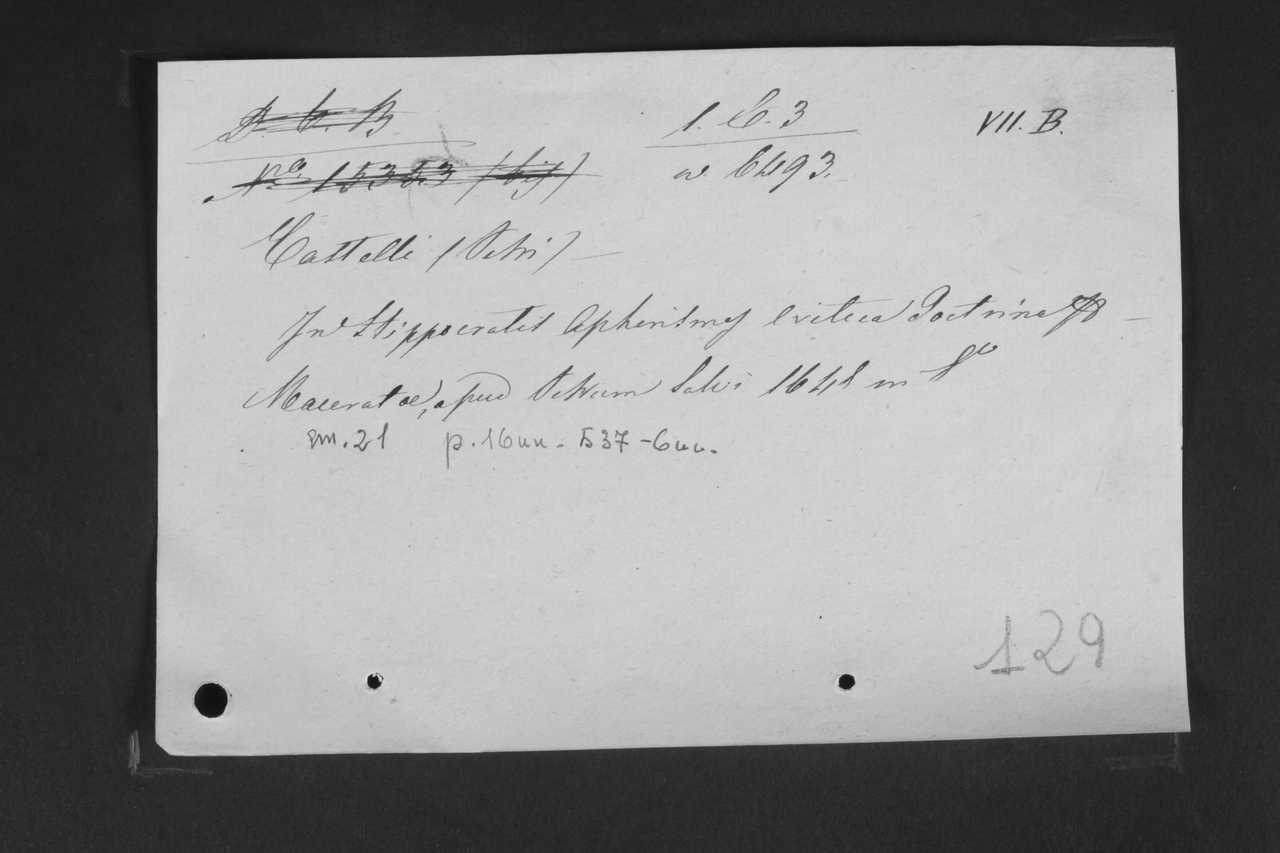 D. C. B. 1. C. 3 VII. B.
Nro. 15353 (bij) w 6493.
Castelli (Petri) –
In Hippocratis Aphorismos critica Doctrina –
Maceratae, apud Petrum Salvi 1648 in 8vo
cm. 21 p. 16nn. 537-6nn.
129